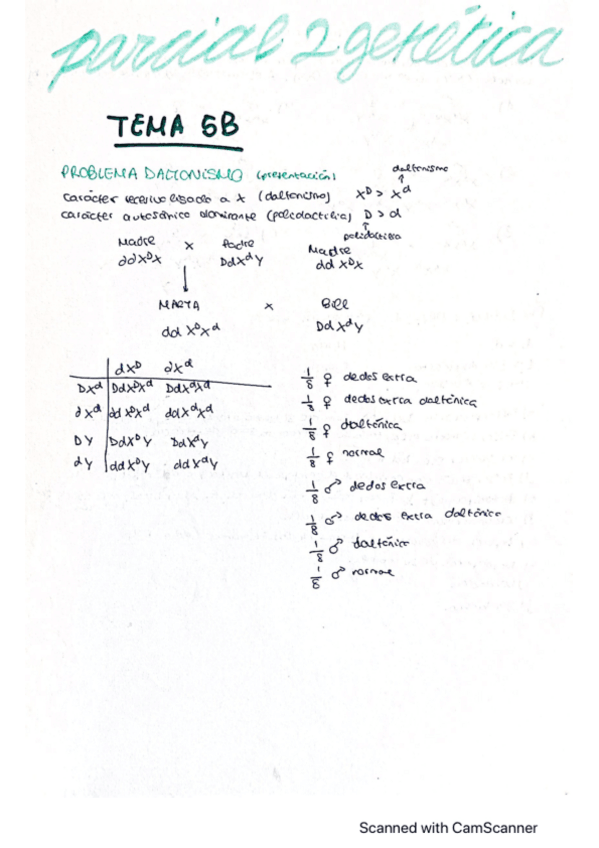 parcial 2 genética
TEMA 5B
PROBLEMA DALTONISMO (presentación)
daltonismo
↑
carácter recesivo ligado a X (daltonismo) X^D > X^d
carácter autosómico dominante (polidactilia) D > d
↑
polidactilia
Madre x Padre
ddX^DX DdX^dY
Madre
dd X^DX
↓
MARTA x Bill
dd X^DX^d Dd X^dY
dX^D dX^d
DX^d DdX^DX^d DdX^dX^d
dX^d ddX^DX^d ddX^dX^d
DY DdX^DY DdX^dY
dY ddX^DY ddX^dY
1/8 ♀ dedos extra
1/8 ♀ dedos extra daltónica
1/8 ♀ daltónica
1/8 ♀ normal
1/8 ♂ dedos extra
1/8 ♂ dedos extra daltónico
1/8 ♂ daltónico
1/8 ♂ normal
Scanned with CamScanner